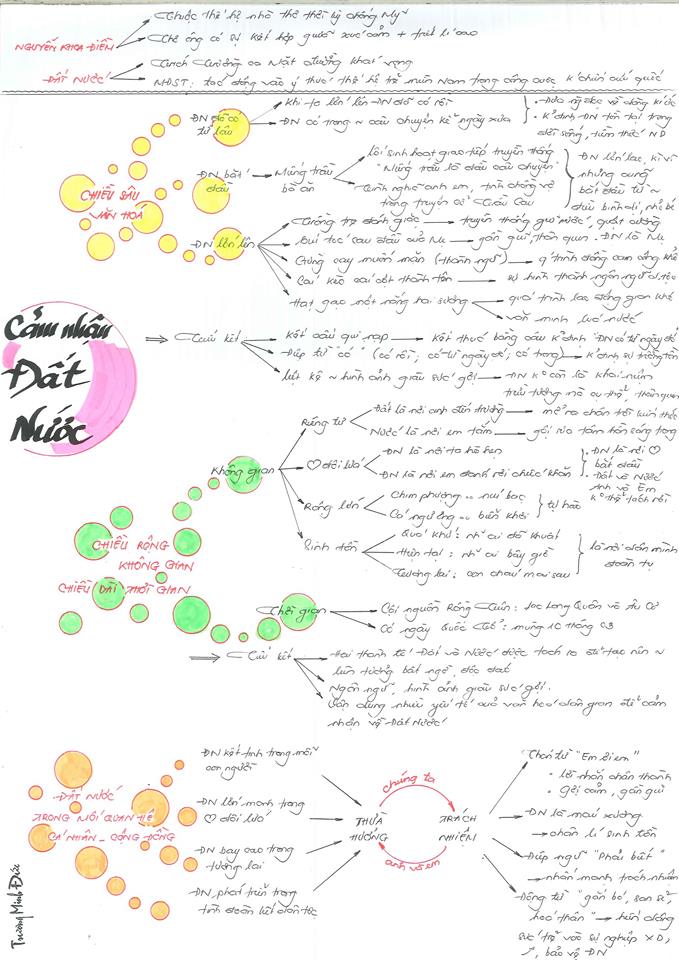 NGUYỄN KHOA ĐIỀM
Thuộc thế hệ nhà thơ thời kỳ chống Mỹ
Thơ ông có sự kết hợp giữa xúc cảm + triết lí
ĐẤT NƯỚC
Trích Trường ca Mặt đường khát vọng
MĐST: tác động vào ý thức thế hệ trẻ miền Nam trong công cuộc k'chiến cứu quốc
Cảm nhận
Đất
Nước
CHIỀU SÂU
VĂN HOÁ
ĐN đã có
từ lâu
Khi ta lớn lên ĐN đã có rồi
ĐN có trong ~ câu chuyện kể ngày xưa
ĐN bắt
đầu
Miếng trầu
bà ăn
Lối sinh hoạt giao tiếp truyền thống
"Miếng trầu là đầu câu chuyện"
Tình nghĩa anh em, tình chồng vợ
trong truyện cổ Trầu Cau
ĐN lớn lao, kì vĩ
nhưng cũng
bắt đầu từ ~
điều bình dị, nhỏ bé
ĐN lớn lên
Trồng tre đánh giặc
truyền thống giữ nước, quật cường
Búi tóc sau đầu của Mẹ
gần gũi thân quen. ĐN là Mẹ
Gừng cay muối mặn (thành ngữ)
Cái kèo cái cột thành tên
sự hình thành ngôn ngữ d.tộc
Hạt gạo một nắng hai sương
quá trình lao động gian khổ
văn minh lúa nước
Tiểu kết
Kết cấu qui nạp
Kết thúc bằng câu k'định "ĐN có từ ngày đó"
Điệp từ "có" (có rồi; có từ ngày đó; có trong)
k'định sự trường tồn
Liệt kê ~ hình ảnh giàu sức gợi
ĐN k° còn là khái niệm
trừu tượng mà cụ thể, thân quen
CHIỀU RỘNG
KHÔNG GIAN
CHIỀU DÀI THỜI GIAN
Không gian
Riêng tư
Đất là nơi anh đến trường
mở ra chân trời kiến thức
Nước là nơi em tắm
♡ đôi lứa
ĐN là nơi ta hò hẹn
ĐN là nơi em đánh rơi chiếc khăn
. ĐN là nơi ♡
bắt đầu
. Đất và Nước
Anh và Em
k° thể tách rời
Rộng lớn
Chim phượng .. núi bạc
Cá ngư ông .. biển khơi
tự hào
Sinh tồn
Quá khứ: nh~ ai đã khuất
Hiện tại: nh~ ai bây giờ
Tương lai: con cháu mai sau
là nơi dân mình
đoàn tụ
Thời gian
Cội nguồn Rồng Tiên: Lạc Long Quân và Âu Cơ
Có ngày Quốc Tổ: mùng 10 tháng 03
Tiểu kết
Hai thành tố Đất và Nước được tách ra để tạo nên ~
liên tưởng bất ngờ, độc đáo
Ngôn ngữ, hình ảnh giàu sức gợi.
Vận dụng nhiều yếu tố của văn hoá dân gian để cảm
nhận về Đất Nước
ĐẤT NƯỚC
TRONG MỐI QUAN HỆ
CÁ NHÂN - CỘNG ĐỒNG
ĐN kết tinh trong mỗi
con người
ĐN lớn mạnh trong
♡ đôi lứa
ĐN bay cao trong
tương lai
ĐN phát triển trong
tình đoàn kết dân tộc
THỪA
HƯỞNG
chúng ta
anh và em
TRÁCH
NHIỆM
Thán từ "Em ơi em"
. lời nhắn chân thành
. gợi cảm, gần gũi
ĐN là máu xương
→ chân lí sinh tồn
Điệp ngữ "Phải biết"
→ nhấn mạnh trách nhiệm
Động từ "gắn bó, san sẻ,
hoá thân" → hiến dâng
sức trẻ vào sự nghiệp XD,
bảo vệ ĐN
Trương Minh Đức